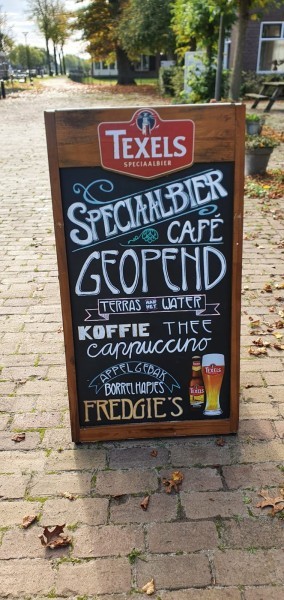 TEXELS
SPECIAALBIER
SPECIAALBIER
CAFÉ
GEOPEND
TERRAS AAN HET WATER
KOFFIE THEE
cappuccino
APPELGEBAK
BORRELHAPJES
FREDGIE'S
TEXELS